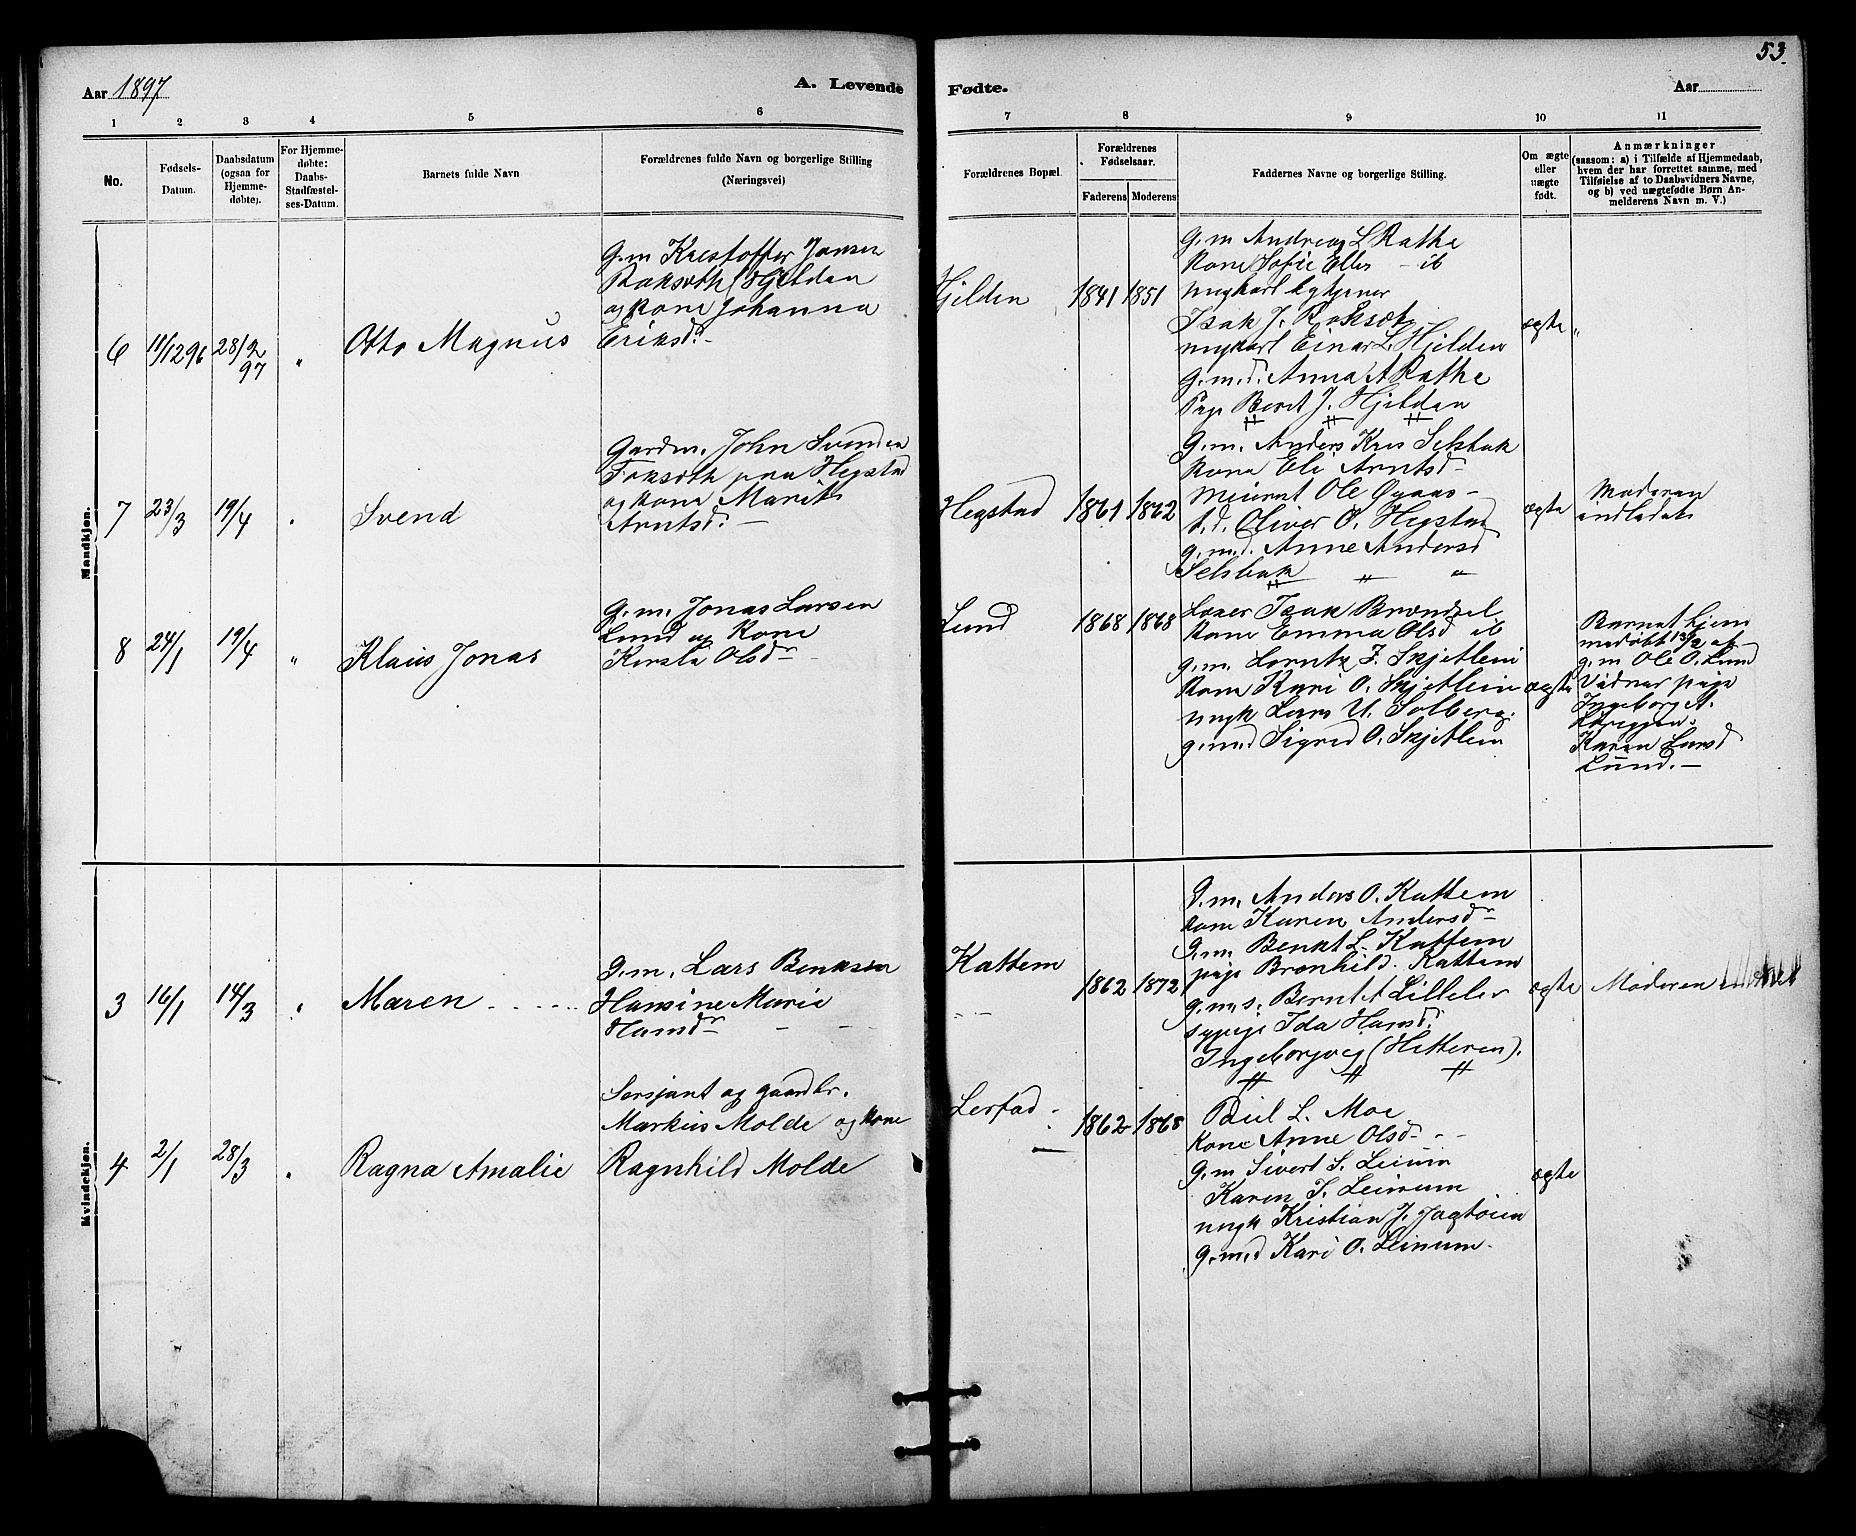 53.
Aar 1897
A. Levende
Fødte.
Aar
1 2 3 4 5 6
7 8 9 10 11
No.
Fødsels-
Datum.
Daabsdatum
(ogsaa for
Hjemme-
døbte).
For Hjemme-
døbte:
Daabs-
Stadfæstel-
ses-Datum.
Barnets fulde Navn
Forældrenes fulde Navn og borgerlige Stilling
(Næringsvei)
Forældrenes Bopæl.
Forældrenes
Fødselsaar.
Faderens Moderens
Faddernes Navne og borgerlige Stilling.
Om ægte
eller
uægte
født.
Anmærkninger
(saasom: a) i Tilfælde af Hjemmedaab,
hvem der har forrettet samme, med
Tilføielse af to Daabsvidners Navne,
og b) ved uægtefødte Børn An-
melderens Navn m. V.)
Mandkjøn.
6
11/12 96
28/2
97
"
Otto Magnus
G.m Kristoffer Jonsen
Hjelden
og kone Johanna
Eriksdr. -
Hjelden
1841 1851
G.m Andreas L Rathe
Kone Sofie Ellev - ib
Isak J. Roksæt
ungkarl Einar L Hjelden
g.m.d. Anna A Rathe
Pige Beret J. Hjelden
ægte
"
7
23/3
19/4
"
Svend
Gardm. John Svendsen
Foksæth paa Hegstad
og kone Marit
Arntsd. -
Hegstad
1861 1862
G.m. Anders Kris Selsbak
kone Eli Arntsd -
Ole Øyaas -
t.d. Oliver O. Hegstad
g.m.d. Anne Andersd
Selsbak " "
ægte
Moderen
indledet
8
24/1
19/4
"
Klaus Jonas
G.m. Jonas Larsen
Lund og kone
Kirsti Olsdr -
Lund
1868 1868
Isak Brændsel
kone Emma Olsd ib
g.m. Lorntz F. Skjetlein
kone Kari O. Skjetlein
ungk Lars U. Solberg.
g.m.d Sigrid O. Skjetlein
ægte
Barnet hjem
medøbt 13/2 af
g.m Ole O. Lund
Vidner pige
Ingeborg A.
Karen Larsd
Lund. -
Kvindekjøn.
3
16/1
14/3
"
Maren
G.m. Lars Benksen
Hansine Marie
Hansdr - -
Kattem
1862 1872
G.m. Anders O. Kattem
kone Karen Andersdr
G.m. Benkt L. Kattem
pige Brønhild. Kattem
g.m.s. Bernt A Lilleler
sypige Ida Hansd.
Ingeborgvig (Hitteren).
" " "
ægte
Moderen
4
2/1
28/3
"
Ragna Amalie
Sersjant og gaardbr.
Markus Molde og kone
Ragnhild Molde
Lerfad -
1862 1868
L. Moe
Kone Anne Olsd -
G.m Sivert S. Leinum
Karen S. Leinum
ungk Kristian J. Jagtøien
g.m.d Kari O. Leinum.
ægte